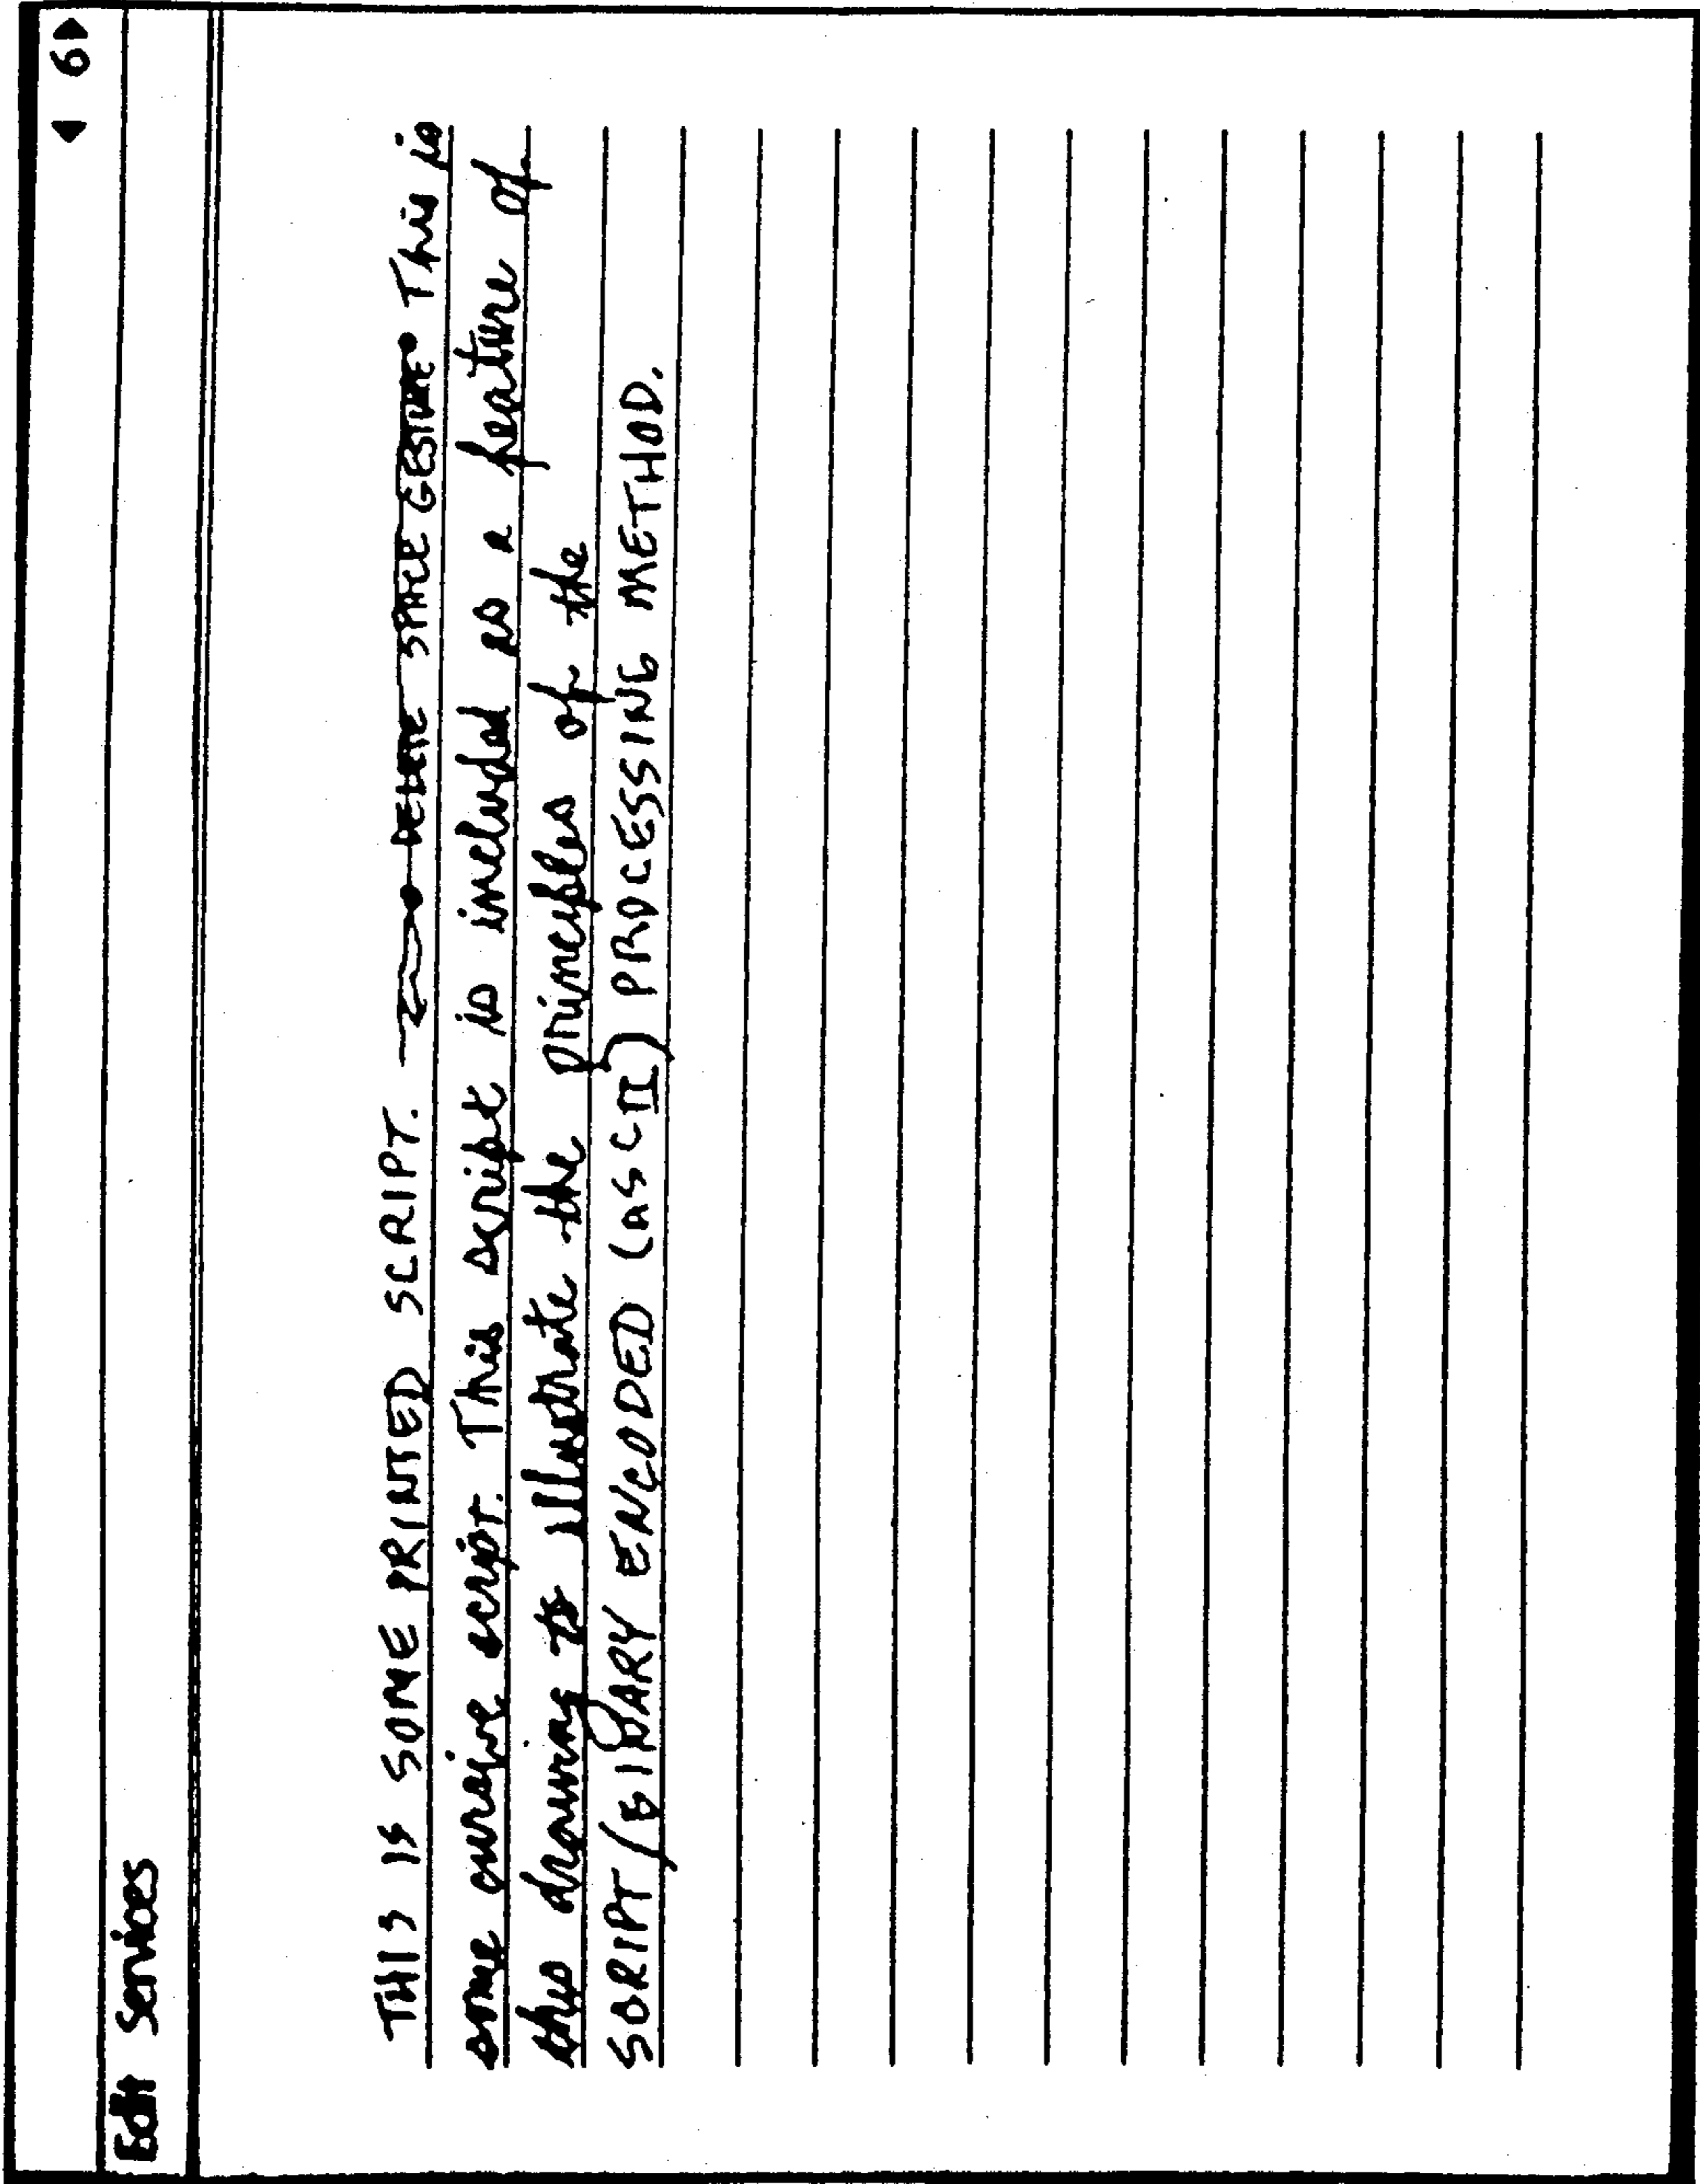 ◀ 6▶
Edit Services
THIS IS SOME PRINTED SCRIPT. DELETE SPACE GESTURE This is
some cursive script. This script is included as a feature of
this drawing to illustrate the principles of the
SCRIPT/BINARY ENCODED (ASCII) PROCESSING METHOD.